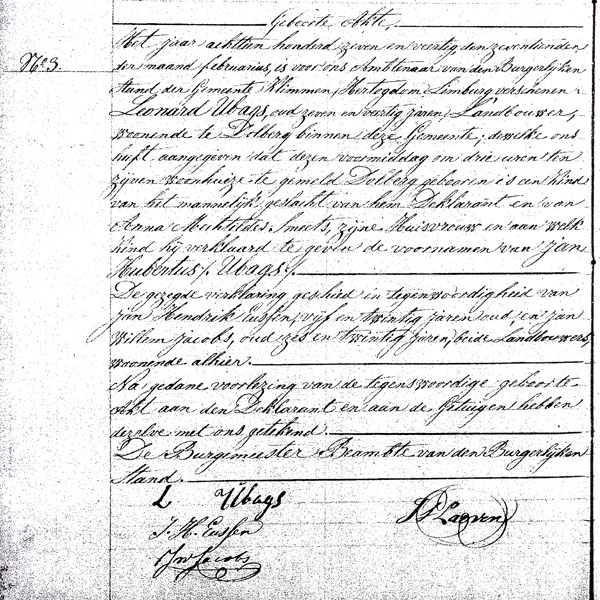 Geboorte Akte.
N° 3.
Het jaar achttien honderd zeven en veertig den zeventienden
der maand februarius, is voor ons Ambtenaar van den Burgerlijken
Stand der Gemeente Klimmen, Hertogdom Limburg verschenen:
Leonard Ubags, oud zeven en veertig jaren, Landbouwer,
woonende te Dolberg binnen deze Gemeente; dewelke ons
heeft aangegeven dat dezen voormiddag om drie uren ten
zijnen woonhuize te gemeld Dolberg gebooren is een kind
van het mannelijk geslacht van hem Deklarant en van
Anna Mechteldes Smeets, zijne Huisvrouw en aan welk
kind hij verklaard te geven de voornamen van Jan
Hubertus /. Ubags ./.
De gezegde verklaring geschied in tegenwoordigheid van
Jan Hendrik Eussen, vijf en twintig jaren oud, en Jan
Willem Jacobs, oud zes en twintig jaren, beide Landbouwers,
woonende alhier.
Na gedane voorlezing van de tegenswoordige geboorte
Akt aan den Deklarant en aan de Getuigen hebben
dezelve met ons getekend.
De Burgemeester Beambte van den Burgerlijken
Stand.
L Ubags
J. H. Eussen
J W Jacobs